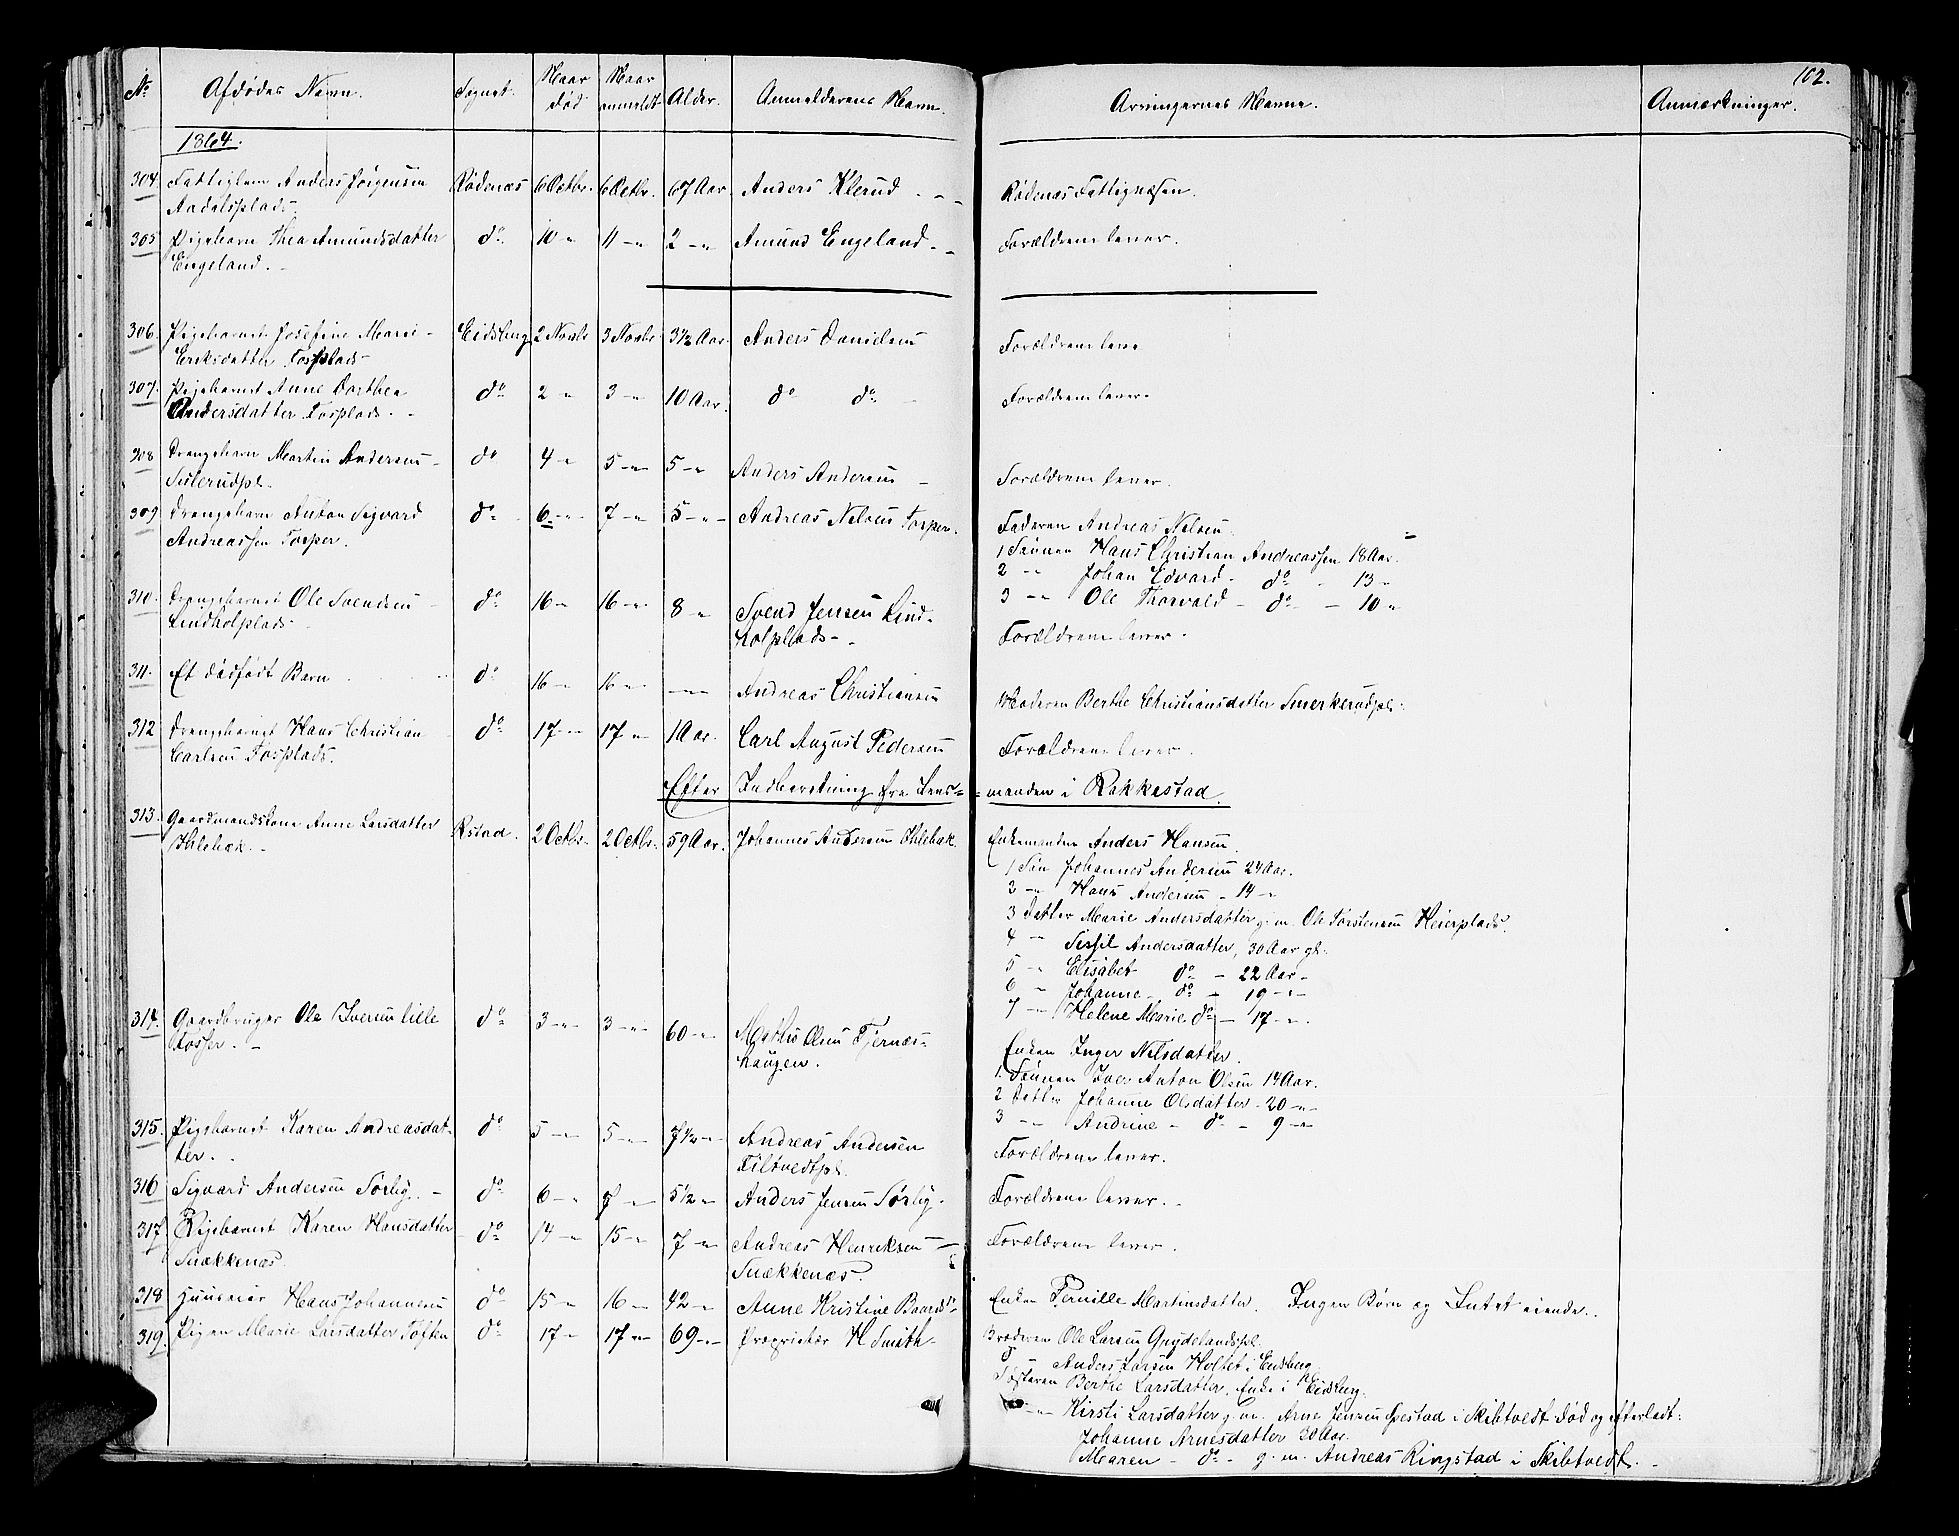 102.
No Afdødes Navn. Sognet. Naar død Naar anmeldt Alder. Anmelderens Navn. Arvingernes Navne. Anmærkninger.
1864.
304. Fattiglem Anders Jørgensen Rødenæs 6 Octbr. 6 Octbr. 67 Aar Anders Klerud - - Rødenæs Fattigvæsen.
305 Pigebarn Thea Amundsdatter do 10 " 11 - " 2 - " Amund Engeland - - Forældrene lever.
Engeland. -
306. Pigebarnet Josefine Marie - Eidsberg 2 Novbr 3 Novbr. 3½ Aar. Anders Danielsen Forældrene leve
Eriksdatter Fosplads -
307. Pigebarnet Anne Dorthea do 2 - " 3 - " 10 Aar. do do Forældrene lever -
Andersdatter Fosplads. -
308 Drengebarn Martin Andersen - do 4 - " 5 - " 5 - " Anders Andersen - Forældrene lever.
309 Drengebarn Anton Sigvard do 6 - " 7 - " 5 - " - Andreas Nilsen Fosser. Faderen Andreas Nilsen
Andreassen Fosser.
1 Sønnen Hans Christian Andreassen 18 Aar.
2 - " Johan Edvard - do - 13 - "
3 - " Ole Thorvald - do - 10 "
310. Drengebarnet Ole Svendsen - do 16 - " 16 - " 8 - " Svend Jensen Lind-
Lindholplads - holplads - - Forældrene lever -
311. Et dødfødt Barn do 16 - " 16 - " - " - Andreas Christiansen Moderen Berthe Christiansdatter
312 Drengebarnet Hans Christian do 17 - " 17 - " 1 Aar. Carl August Pedersen Forældrene lever -
Carlsen Fosplads.
Efter Indberetning fra Lens-
manden i Rakkestad.
313. Gaardmandskone Anne Larsdatter Rstad. 2 Octbr. 2 Octbr. 59 Aar. Johannes Andersen Ihlebæk. Enkemanden Anders Hansen
Ihlebæk. -
1 Søn Johannes Andersen 24 Aar.
2 - " Hans Andersen - 14 - "
3 Datter Marie Andersdatter g. m. Ole Torstensen Heierplads.
4 - " Sissil Andersdatter, 30 Aar gl.
5 - " Elisabet do - 22 Aar -
6 " Johanne - do - 19 - " -
7 - " Helene Marie do - 17 - " .
314. Gaardbruger Ole Iversen lille do 3 - " - 3 - " - 60 - " Mathis Olsen Tjernæs-
Fosser. - haugen. Enken Inger Nilsdatter.
1. Sønnen Iver Anton Olsen 14 Aar.
2 Datter Johanne Olsdatter - 20 - " -
3 - " Andrine - do - 9 - "
315. Pigebarnet Karen Andreasdat- do 5 - " - 5 - " - 7½ - " - Andreas Andersen Forældrene lever.
ter. .
316 Sigvard Andersen Sørby. - do 6 - " 7 - " 5½ " Anders Jensen Sørby. Forældrene lever. -
317. Pigebarnet Karen Hansdatter do 14 - " 15 - " 7 - " Andreas Henriksen - Forældrene lever.
Snækkenæs. Snækkenæs.
318 Huusmand Hans Johannesen do 15 - " 16 - " 42 - " Anne Kristine Enken Pernille Martinsdatter. Ingen Børn og Intet eiende.
319. Pigen Marie Larsdatter Toften do 17 - " 17 - " 69 - " - Proprietær H Smith - Broderen Ole Larsen
Anders Larsen Holtet i Eidsberg
Søsteren Berthe Larsdatter, Enke i Eidsberg.
- " - Kirsti Larsdatter g. m. Arne Jensen i Skibtvedt død og efterladt:
Johanne Arnesdatter 30 Aar.
Maren - do - g. m. Andreas Ringstad i Skibtvedt. -